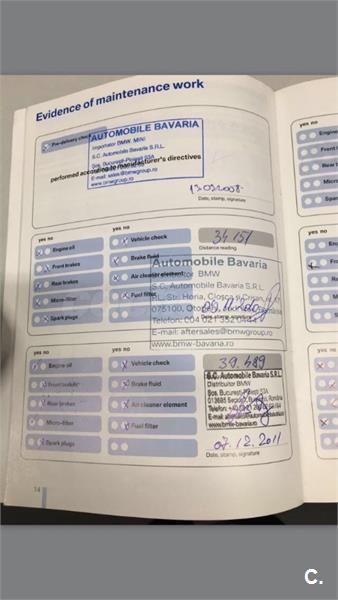 Evidence of maintenance work
Pre-delivery check
performed according to manufacturer's directives
AUTOMOBILE BAVARIA
Importator BMW, MINI
S.C. Automobile Bavaria S.R.L.
Sos. Bucuresti-Ploiesti 53A
E-mail: sales@bmwgroup.ro
www.bmwgroup.ro
13032008
Date, stamp, signature
yes no
Engine oil
Front brakes
Rear brakes
Micro-filter
Spark plugs
yes no
Vehicle check
Brake fluid
Air cleaner element
Fuel filter
Distance reading
Automobile Bavaria
BMW
S.C. Automobile Bavaria S.R.L.
Str. Horia, Closca si Crisan
075100, Otopeni
Telefon: 004 021
E-mail: aftersales@bmwgroup.ro
www.bmw-bavaria.ro
yes no
Engine oil
Front brakes
Rear brakes
Micro-filter
Spark plugs
yes no
Vehicle check
Brake fluid
Air cleaner element
Fuel filter
39 689
S.C. Automobile Bavaria S.R.L.
Distribuitor BMW
Sos. Bucuresti
Romania
Telefon:
E-mail:
www.bmw-bavaria.ro
07.12.2011
Date, stamp, signature
14
yes no
yes no
yes no
C.